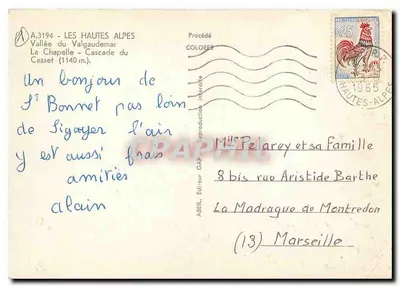 A.3194 - LES HAUTES ALPES
Vallée du Valgaudemar
La Chapelle - Cascade du
Casset (1140 m.).
Procédé
COLOREX
Un bonjour de
St Bonnet pas loin
de Sigoyer l'air
y est aussi frais
amitiés
alain
ABEIL, Editeur GAP reproduction interdite
1965
HAUTES-ALPES
Mlle Pelarey et sa Famille
8 bis rue Aristide Barthe
La Madrague de Montredon
(13) Marseille